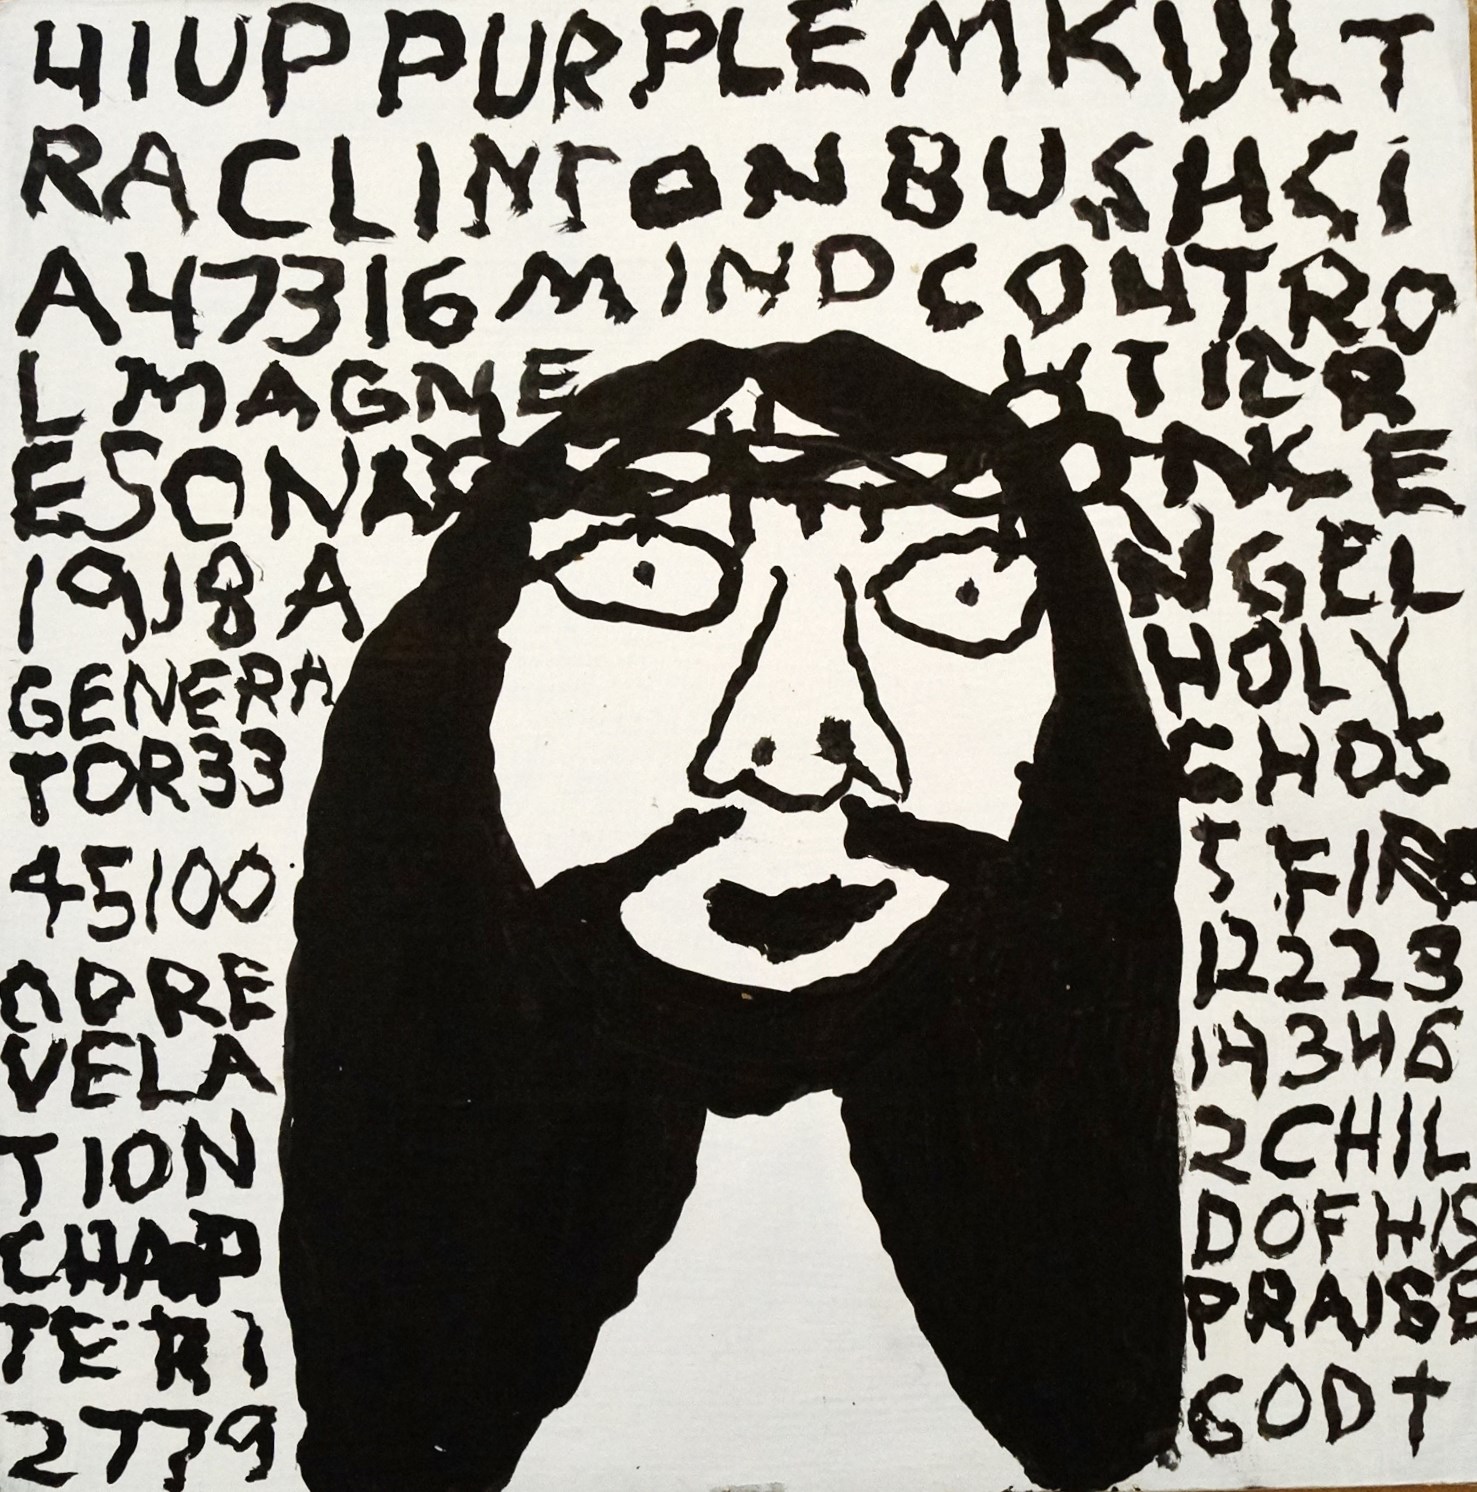 41UP PURPLE MKULT
RACLINTON BUSHCI
A47316 MINDCONTRO
L MAGNE
ESONA
1918 A
GENERA
TOR33
45100
ADRE
VELA
TION
CHAP
TER1
2779
NGEL
HOLY
GHOS
5 FIRE
12223
14346
2CHIL
DOFHIS
PRAISE
GOD†